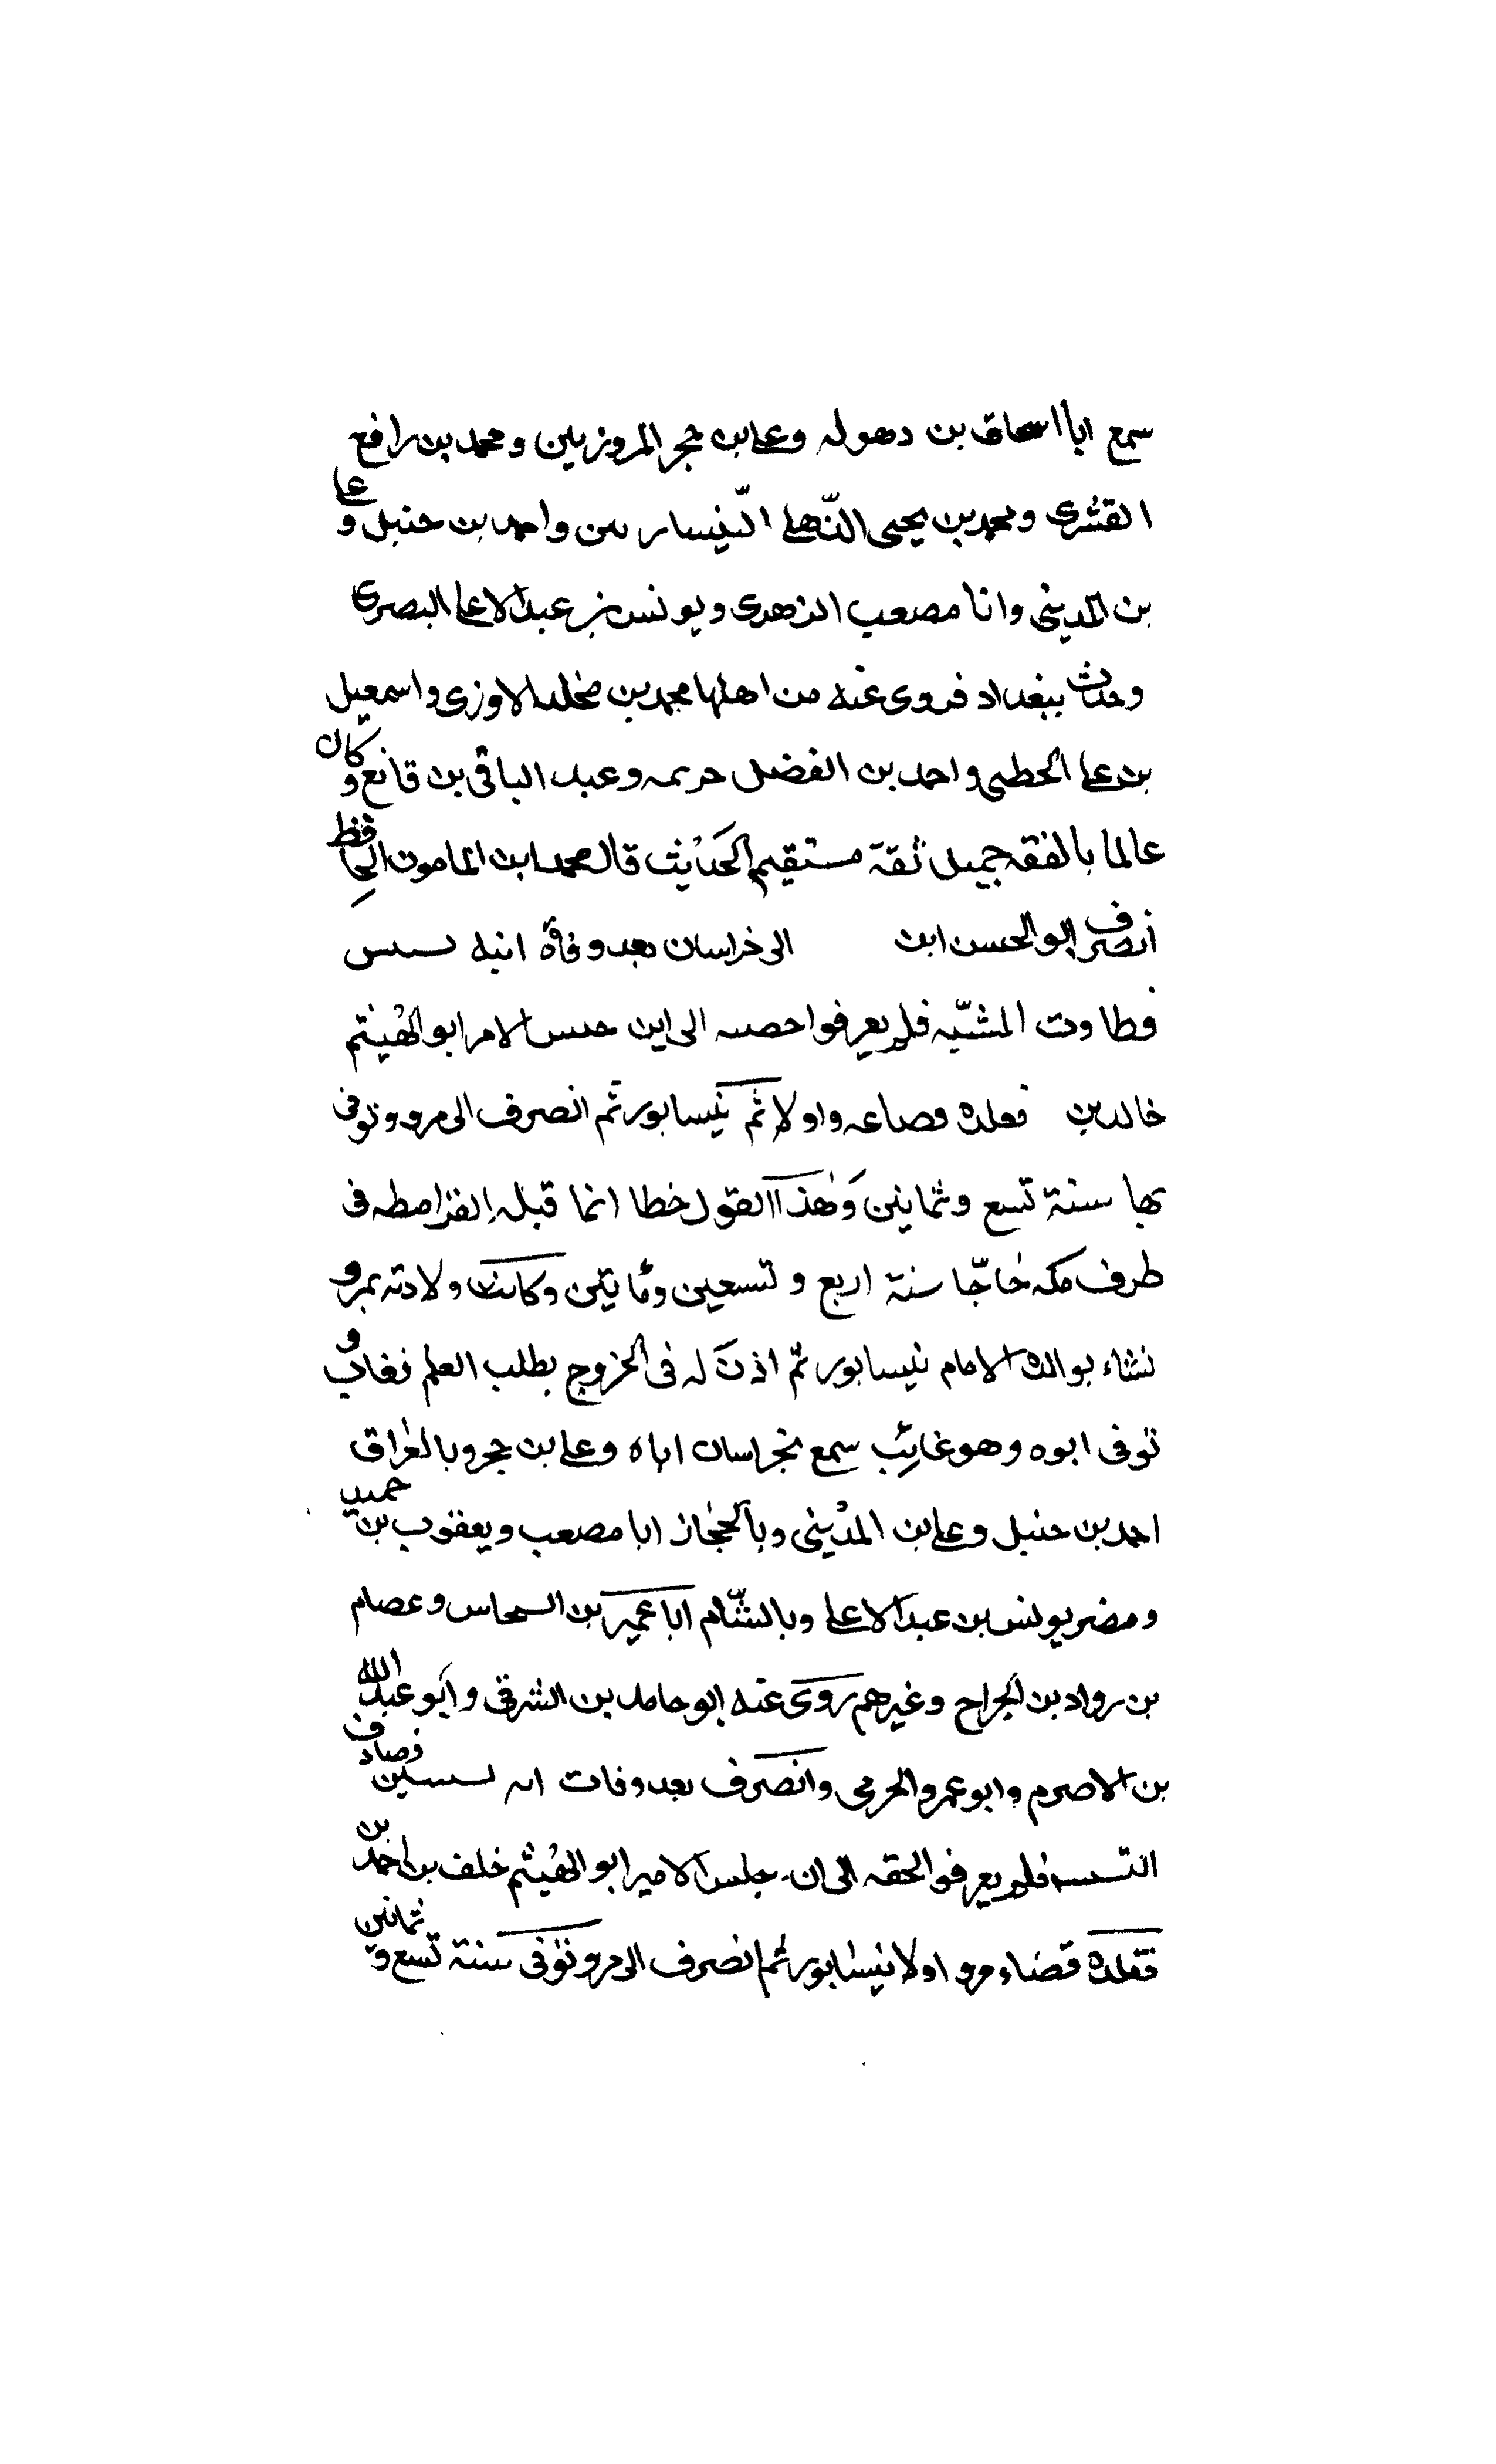 سمع ابا اسحاق بن دهوله وعلى بن حجر المروزيين ومحمد بن رافع
القشرى ومحمد بن يحيى الذهلى النيسابرين واحمد بن حنبل وعلى
بن المدينى وانا مصعب الزهرى ويونس بن عبد الاعلى البصرى
وحدث ببغداد فروى عنه من اهلها محمد بن مخلد الاوزى واسمعيل
بن على الحطبى واحمد بن الفضل حريمه وعبد الباقى بن قانع وكان
عالما بالفقه جميل ثقة مستقيم الحديث قال محمد ابن المامون الحافظ
انصرف ابو الحسن ابن الى خراسان بعد وفاة ابيه
المشبه فلم يعرفوا الى اين الامر ابو الهيثم
خالد بن اولا ثم نيسابور ثم انصرف الى مرو وتوفى
بها سنة تسع وثمانين وهذا القول خطا انما قبله القرامطه فى
طرف مكه حاجا سنة اربع وتسعين ومايتين وكانت ولادته بمرو
نشاء بوالده الامام نيسابور ثم اذن له فى الخروج بطلب العلم فغاب و
توفى ابوه وهو غائب سمع بخراسان اباه وعلى بن حجر وبالعراق
احمد بن حنبل وعلى بن المدينى وبالحجاز ابا مصعب ويعقوب بن حميد
ومضر يونس بن عبد الاعلى وبالشام ابا عمير بن السحاس وعصام
بن رواد بن الجراح وغيرهم روى عنه ابو حامد بن الشرقى وابو عبد الله
بن الاصرم وابو عمرو الحرمى وانصرف بعد وفات فصادف
فلم يعرفوا لحقه الى ان جلس الامير ابو الهيثم خلف بن احمد بن
فقلده قضاء مرو اولا نيسابور ثم انصرف الى مرو توفى سنة تسع وثمانين